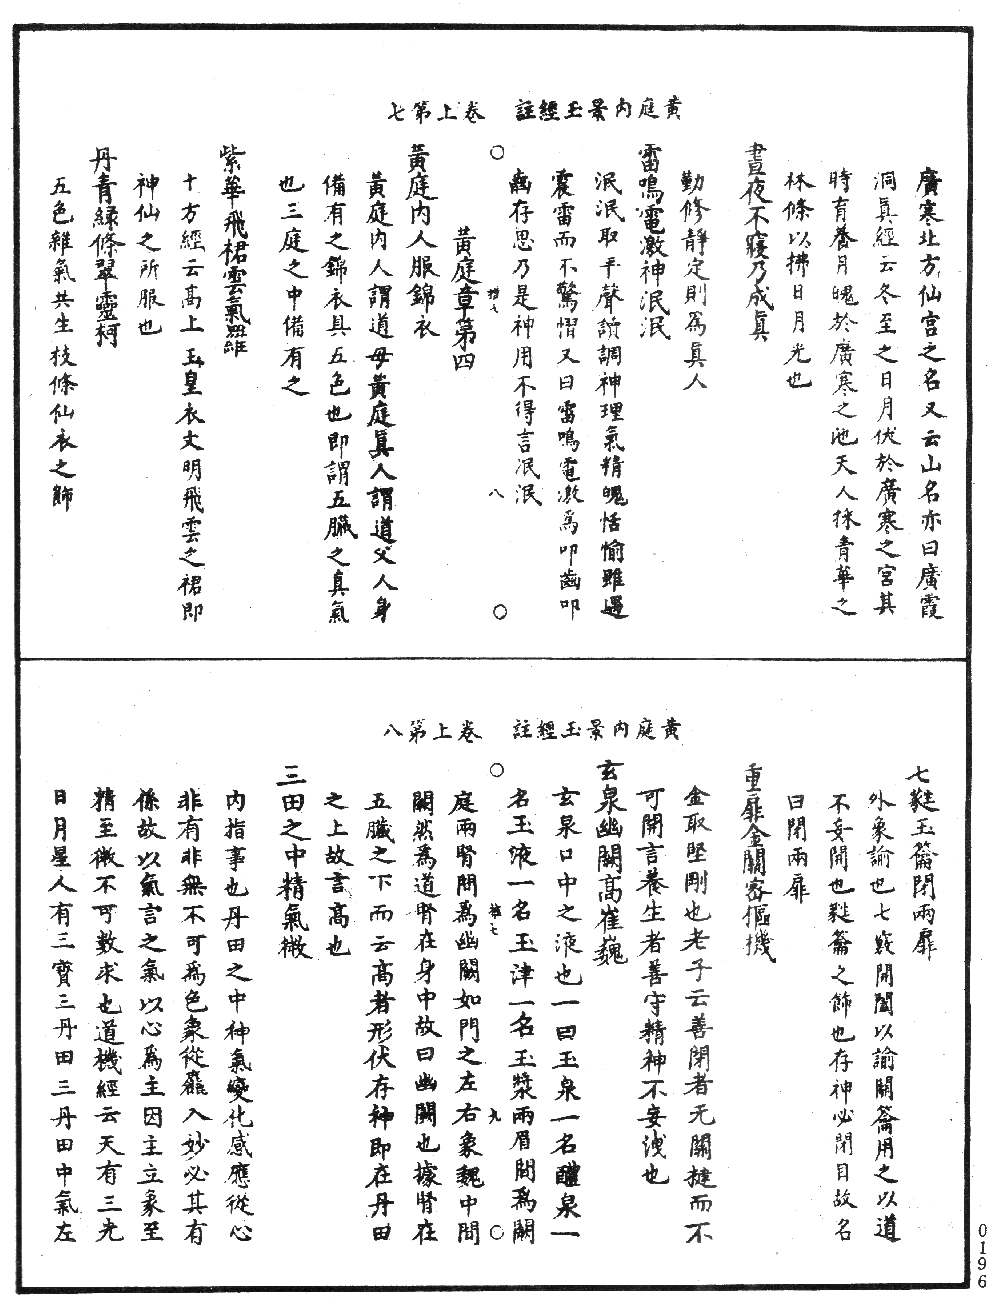 黃庭內景玉經註　卷上第七
廣寒北方仙宮之名又云山名亦曰廣霞
洞眞經云冬至之日月伏於廣寒之宮其
時育養月魄於廣寒之池天人採青華之
林條以拂日月光也
晝夜不寐乃成眞
勤修靜定則爲眞人
雷鳴電激神泯泯
泯泯取平聲讀調神理氣精魄恬愉雖遇
震雷而不驚慴又曰雷鳴電激爲叩齒叩
齒存思乃是神用不得言泯泯
八
黃庭章第四
黃庭內人服錦衣
黃庭內人謂道母黃庭眞人謂道父人身
備有之錦衣具五色也即謂五臟之眞氣
也三庭之中備有之
紫華飛裙雲氣羅
十方經云高上玉皇衣文明飛雲之裙即
神仙之所服也
丹青綠條翠靈柯
五色雜氣共生枝條仙衣之飾
黃庭內景玉經註　卷上第八
七蕤玉籥閉兩扉
外象諭也七竅開闔以諭關籥用之以道
不妄開也蕤籥之飾也存神必閉目故名
曰閉兩扉
重扉金關密樞機
金取堅剛也老子云善閉者无關揵而不
可開言養生者善守精神不妄洩也
玄泉幽闕高崔巍
玄泉口中之液也一曰玉泉一名醴泉一
名玉液一名玉津一名玉漿兩眉間爲闕
九
庭兩腎間爲幽闕如門之左右象魏中間
闕然爲道腎在身中故曰幽闕也據腎在
五臟之下而云高者形伏存神即在丹田
之上故言高也
三田之中精氣微
內指事也丹田之中神氣變化感應從心
非有非無不可爲色象從麤入妙必其有
係故以氣言之氣以心爲主因主立象至
精至微不可數求也道機經云天有三光
日月星人有三寶三丹田三丹田中氣左
0196